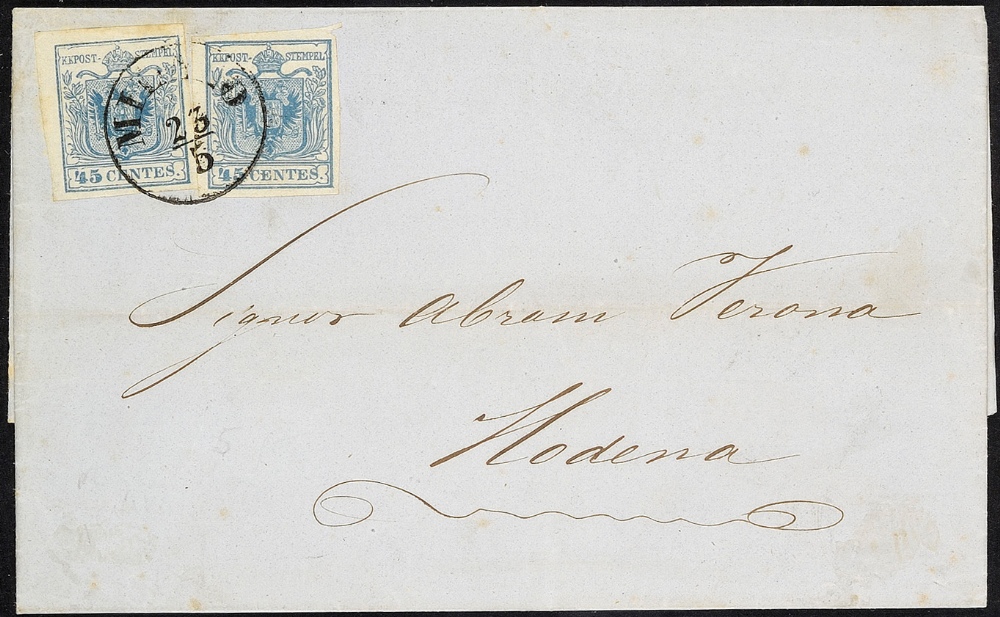 KKPOST-STEMPEL
45 CENTES.
KKPOST-STEMPEL
45 CENTES.
MILANO
23
5
Signor Abram Verona
Modena